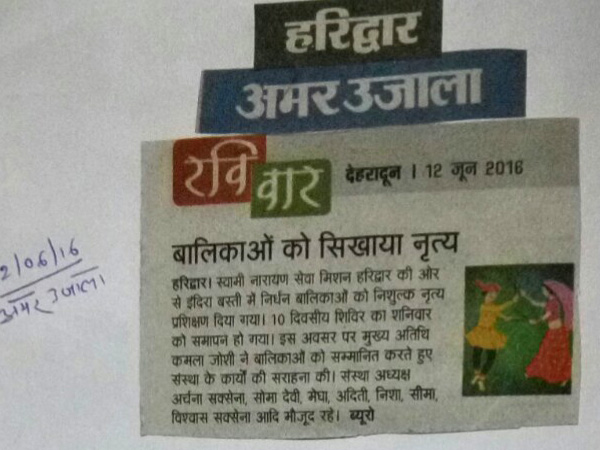 हरिद्वार
अमर उजाला
रविवार
देहरादून । 12 जून 2016
बालिकाओं को सिखाया नृत्य
हरिद्वार। स्वामी नारायण सेवा मिशन हरिद्वार की ओर
से इंदिरा बस्ती में निर्धन बालिकाओं को निशुल्क नृत्य
प्रशिक्षण दिया गया। 10 दिवसीय शिविर का शनिवार
को समापन हो गया। इस अवसर पर मुख्य अतिथि
कमला जोशी ने बालिकाओं को सम्मानित करते हुए
संस्था के कार्यों की सराहना की। संस्था अध्यक्ष
अर्चना सक्सेना, सोमा देवी, मेघा, अदिती, निशा, सीमा,
विश्वास सक्सेना आदि मौजूद रहे। ब्यूरो
2/06/16
अमर उजाला